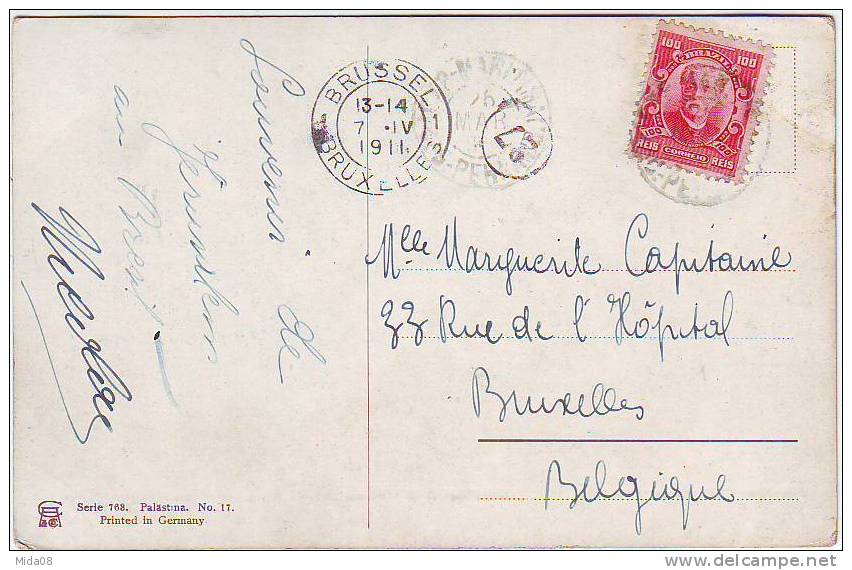 Souvenir de
Jérusalem
au Brésil
BRUSSEL 1
13-14
7 IV
1911
BRUXELLES
MAR
26
100 BRAZIL 100
100 100
REIS CORREIO REIS
Mlle Marguerite Capitaine
33 Rue de l'Hôpital
Bruxelles
Belgique
Serie 768. Palästina. No. 17.
Printed in Germany
Mida08
delcampe.net